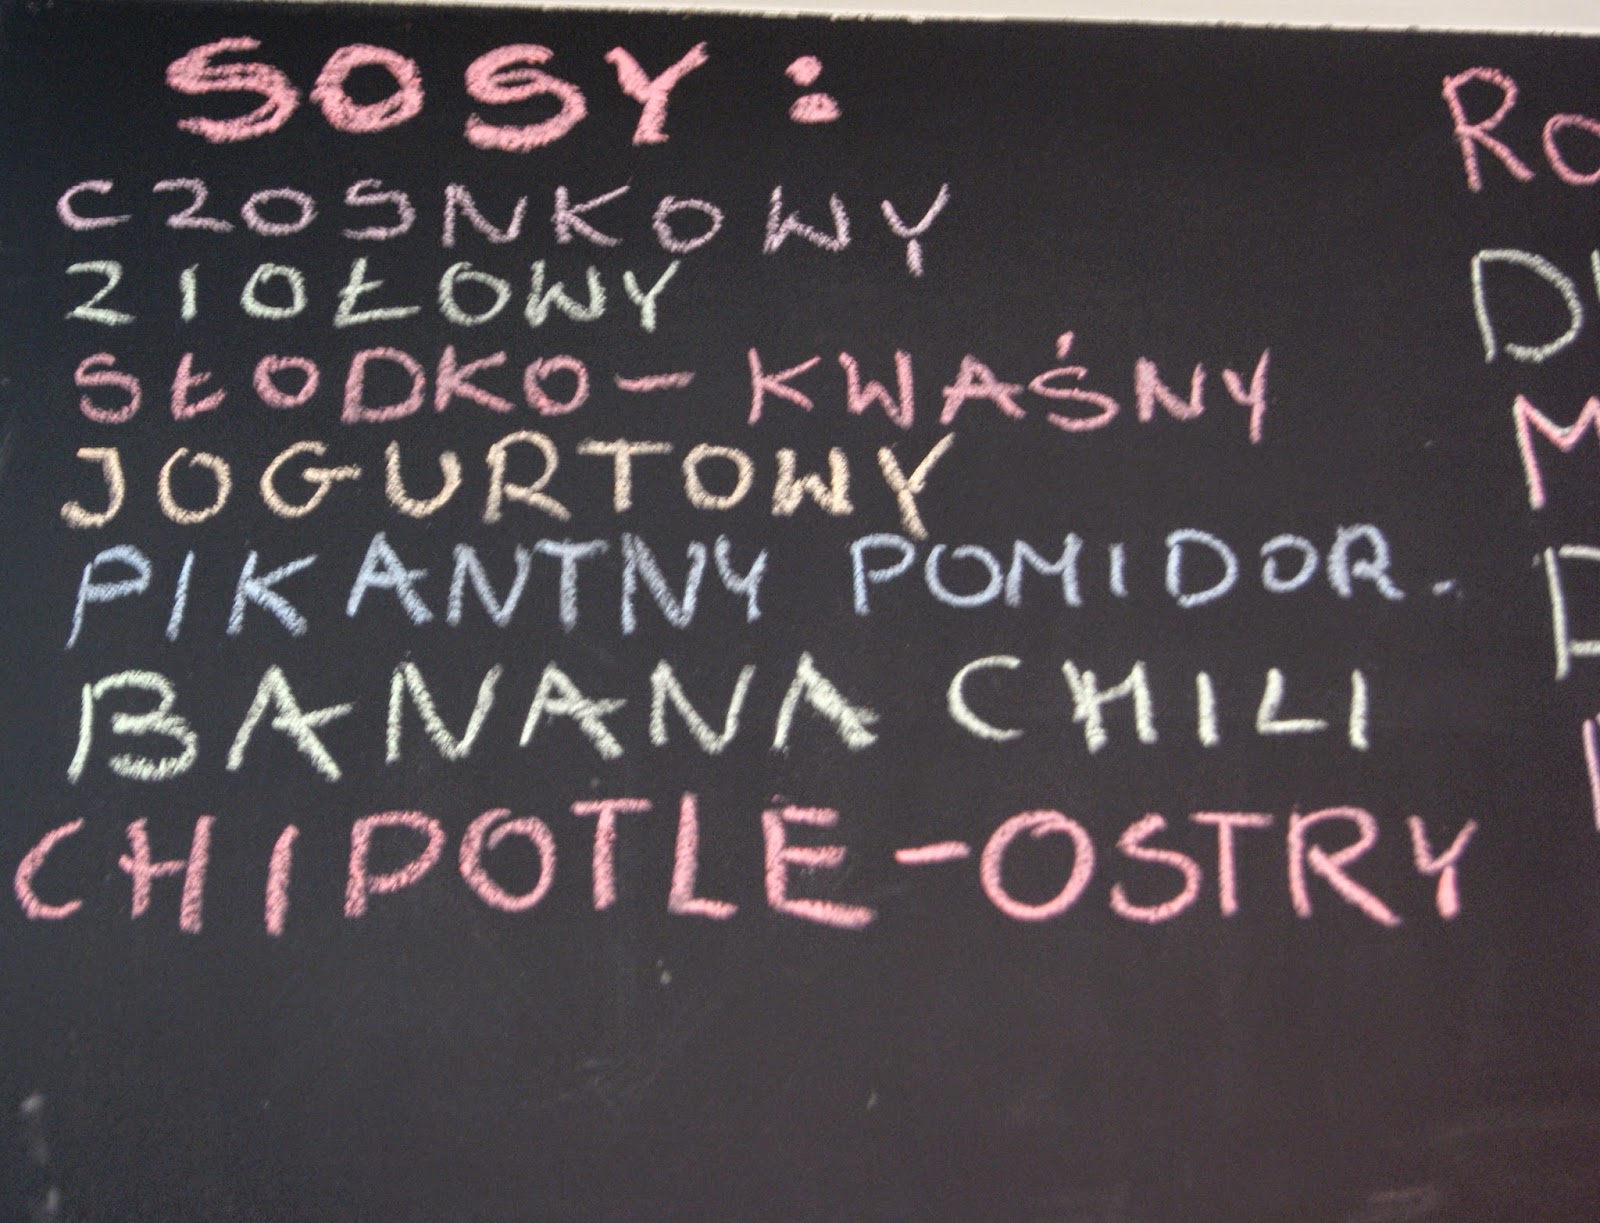 SOSY:
CZOSNKOWY
ZIOŁOWY
SŁODKO-KWAŚNY
JOGURTOWY
PIKANTNY POMIDOR.
BANANA CHILI
CHIPOTLE-OSTRY